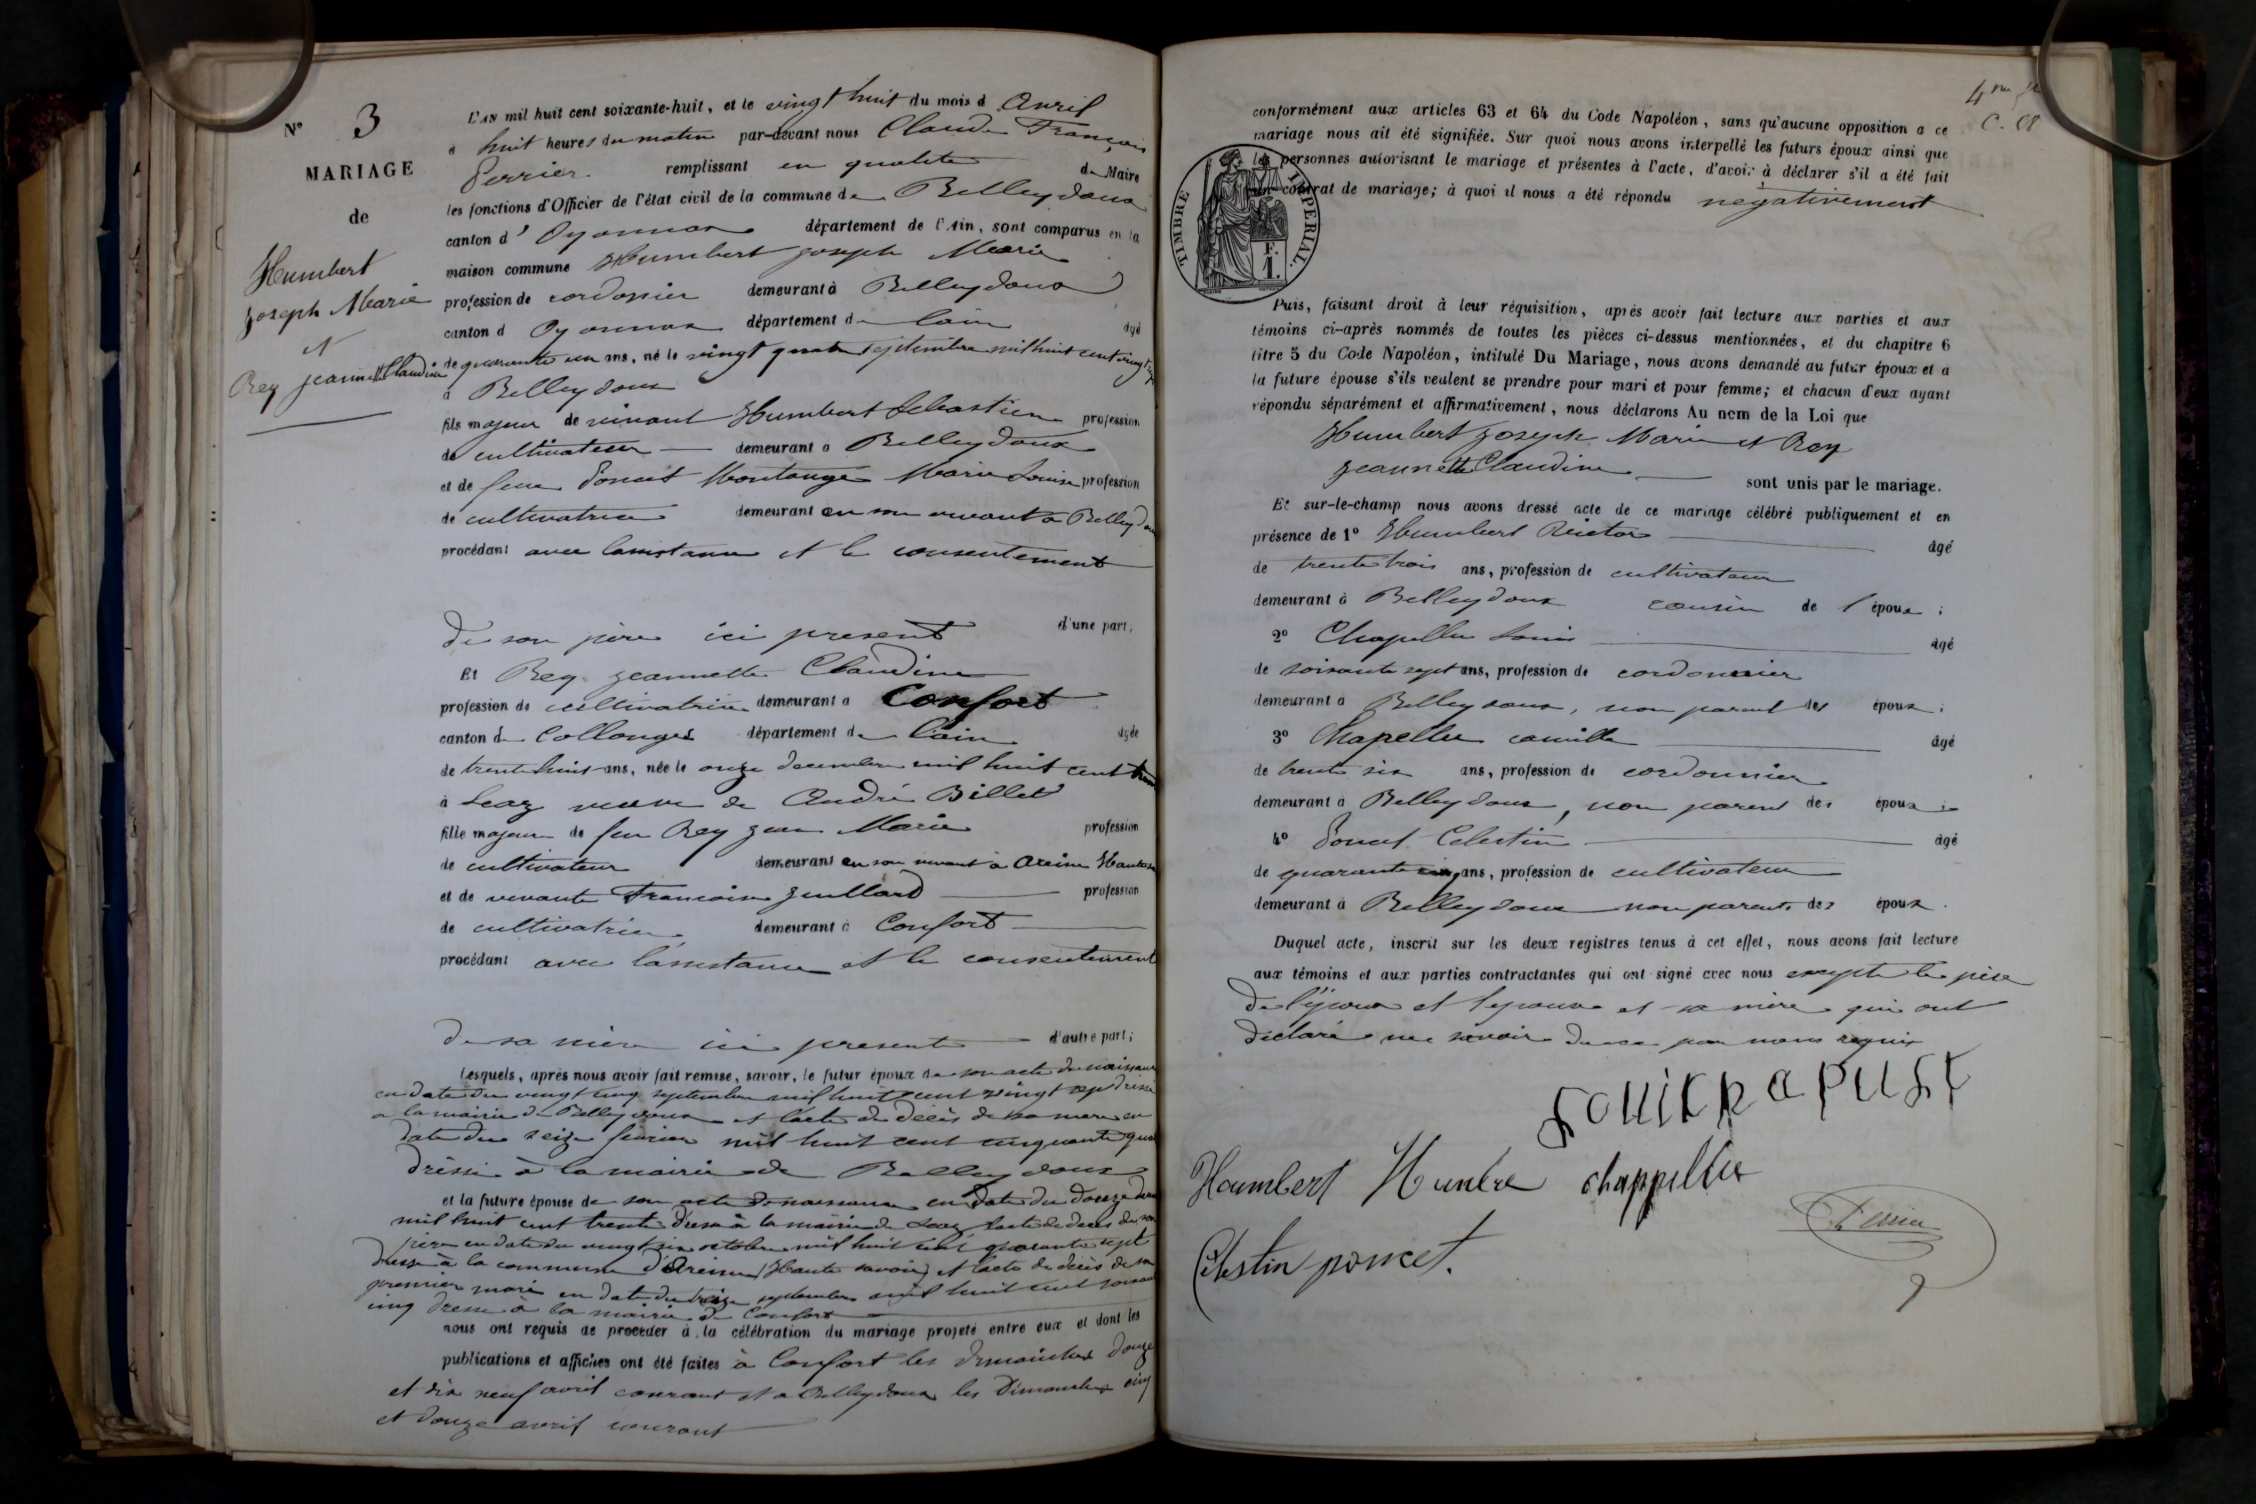 N° 3
MARIAGE
de
Humbert
Joseph Marie
et
Rey Jeannette Claudine
L'AN mil huit cent soixante-huit, et le vingt huit du mois d Avril
à huit heures du matin par-devant nous Claude François
Perrier remplissant en qualité de Maire
les fonctions d'Officier de l'état civil de la commune de Belleydoux
canton d' Oyonnax département de l'Ain, sont comparus en la
maison commune Humbert Joseph Marie
profession de cordonnier demeurant à Belleydoux
canton d Oyonnax département de l'ain âgé
de quarante un ans, né le vingt quatre septembre mil huit cent vingt
à Belleydoux
fils majeur de vivant Humbert Sebastien profession
de cultivateur demeurant à Belleydoux
et de feue Poncet Montange Marie Louise profession
de cultivatrice demeurant en son vivant à Belleydoux
procédant avec l'assistance et le consentement
de son père ici présent d'une part;
Et Rey Jeannette Claudine
profession de cultivatrice demeurant à Confort
canton de Collonges département de l'ain âgée
de trente huit ans, née le onze decembre mil huit cent
à Leaz veuve de André Billet
fille majeure de feu Rey Jean Marie profession
de cultivateur demeurant en son vivant à Areine Haute
et de vivante Francoise Juillard profession
de cultivatrice demeurant à Confort
procédant avec l'assistance et le consentement
de sa mère ici presente d'autre part;
Lesquels, après nous avoir fait remise, savoir, le futur époux de son acte de naissance
en date du vingt cinq septembre mil huit cent vingt sept dressé
a la mairie de Belleydoux et l'acte de décès de sa mere en
date du seize fevrier mil huit cent cinquante
dressé à la mairie de Belleydoux
et la future épouse de son acte de naissance en date du douze
mil huit cent trente dressé à la mairie de Leaz l'acte de deces de son
père en date du vingt six octobre mil huit cent quarante sept
dressé à la commune d'Areine (Haute savoie) et l'acte de décès de son
premier mari en date du treize septembre mil huit cent soixante
cinq dressé à la mairie de Confort
nous ont requis de procéder à la célébration du mariage projeté entre eux et dont les
publications et affiches ont été faites à Confort les dimanches douze
et dix neuf avril courant et a Belleydoux les Dimanches cinq
et douze avril courant
conformément aux articles 63 et 64 du Code Napoléon, sans qu'aucune opposition a ce
mariage nous ait été signifiée. Sur quoi nous avons interpellé les futurs époux ainsi que
les personnes autorisant le mariage et présentes à l'acte, d'avoir à déclarer s'il a été fait
un contrat de mariage; à quoi il nous a été répondu négativement
TIMBRE IMPERIAL.
F.
1.
Puis, faisant droit à leur réquisition, après avoir fait lecture aux parties et aux
témoins ci-après nommés de toutes les pièces ci-dessus mentionnées, et du chapitre 6
titre 5 du Code Napoléon, intitulé Du Mariage, nous avons demandé au futur époux et a
la future épouse s'ils veulent se prendre pour mari et pour femme; et chacun d'eux ayant
répondu séparément et affirmativement, nous déclarons Au nom de la Loi que
Humbert Joseph Marie et Rey
Jeannette Claudine sont unis par le mariage.
Et sur-le-champ nous avons dressé acte de ce mariage célébré publiquement et en
présence de 1° Humbert Rictor âgé
de trente trois ans, profession de cultivateur
demeurant à Belleydoux cousin de l'époux;
2° Chapellu Louis âgé
de soixante sept ans, profession de cordonnier
demeurant à Belleydoux, non parent des époux;
3° Chapellu camille âgé
de trente six ans, profession de cordonnier
demeurant à Belleydoux, non parent des époux;
4° Poncet Celestin âgé
de quarante ans, profession de cultivateur
demeurant à Belleydoux non parent des époux.
Duquel acte, inscrit sur les deux registres tenus à cet effet, nous avons fait lecture
aux témoins et aux parties contractantes qui ont signé avec nous excepté le père
de l'époux et l'epouse et sa mère qui ont
declaré ne savoir de ce par nous requis
Houmbert Humbre chappellu
Célestin poncet.
Perrier